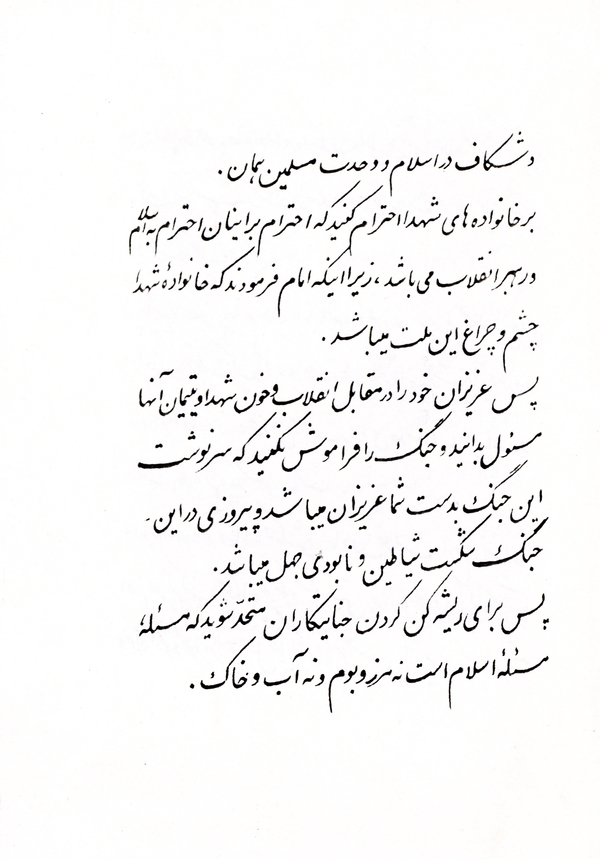 و شکاف در اسلام و وحدت مسلمین همان .
بر خانواده های شهدا احترام کنید که احترام بر اینان احترام به اسلام
و رهبر انقلاب می باشد ، زیرا اینکه امام فرمودند که خانوادهٔ شهدا
چشم و چراغ این ملت میباشد .
پس عزیزان خود را در مقابل انقلاب و خون شهدا و یتیمان آنها
مسئول بدانید و جنگ را فراموش نکنید که سرنوشت
این جنگ بدست شما عزیزان میباشد و پیروزی در این
جنگ شکست شیاطین و نابودی جهل میباشد .
پس برای ریشه کن کردن جنایتکاران متحد شوید که مسئلهٔ
مسئلهٔ اسلام است نه مرز و بوم و نه آب و خاک .